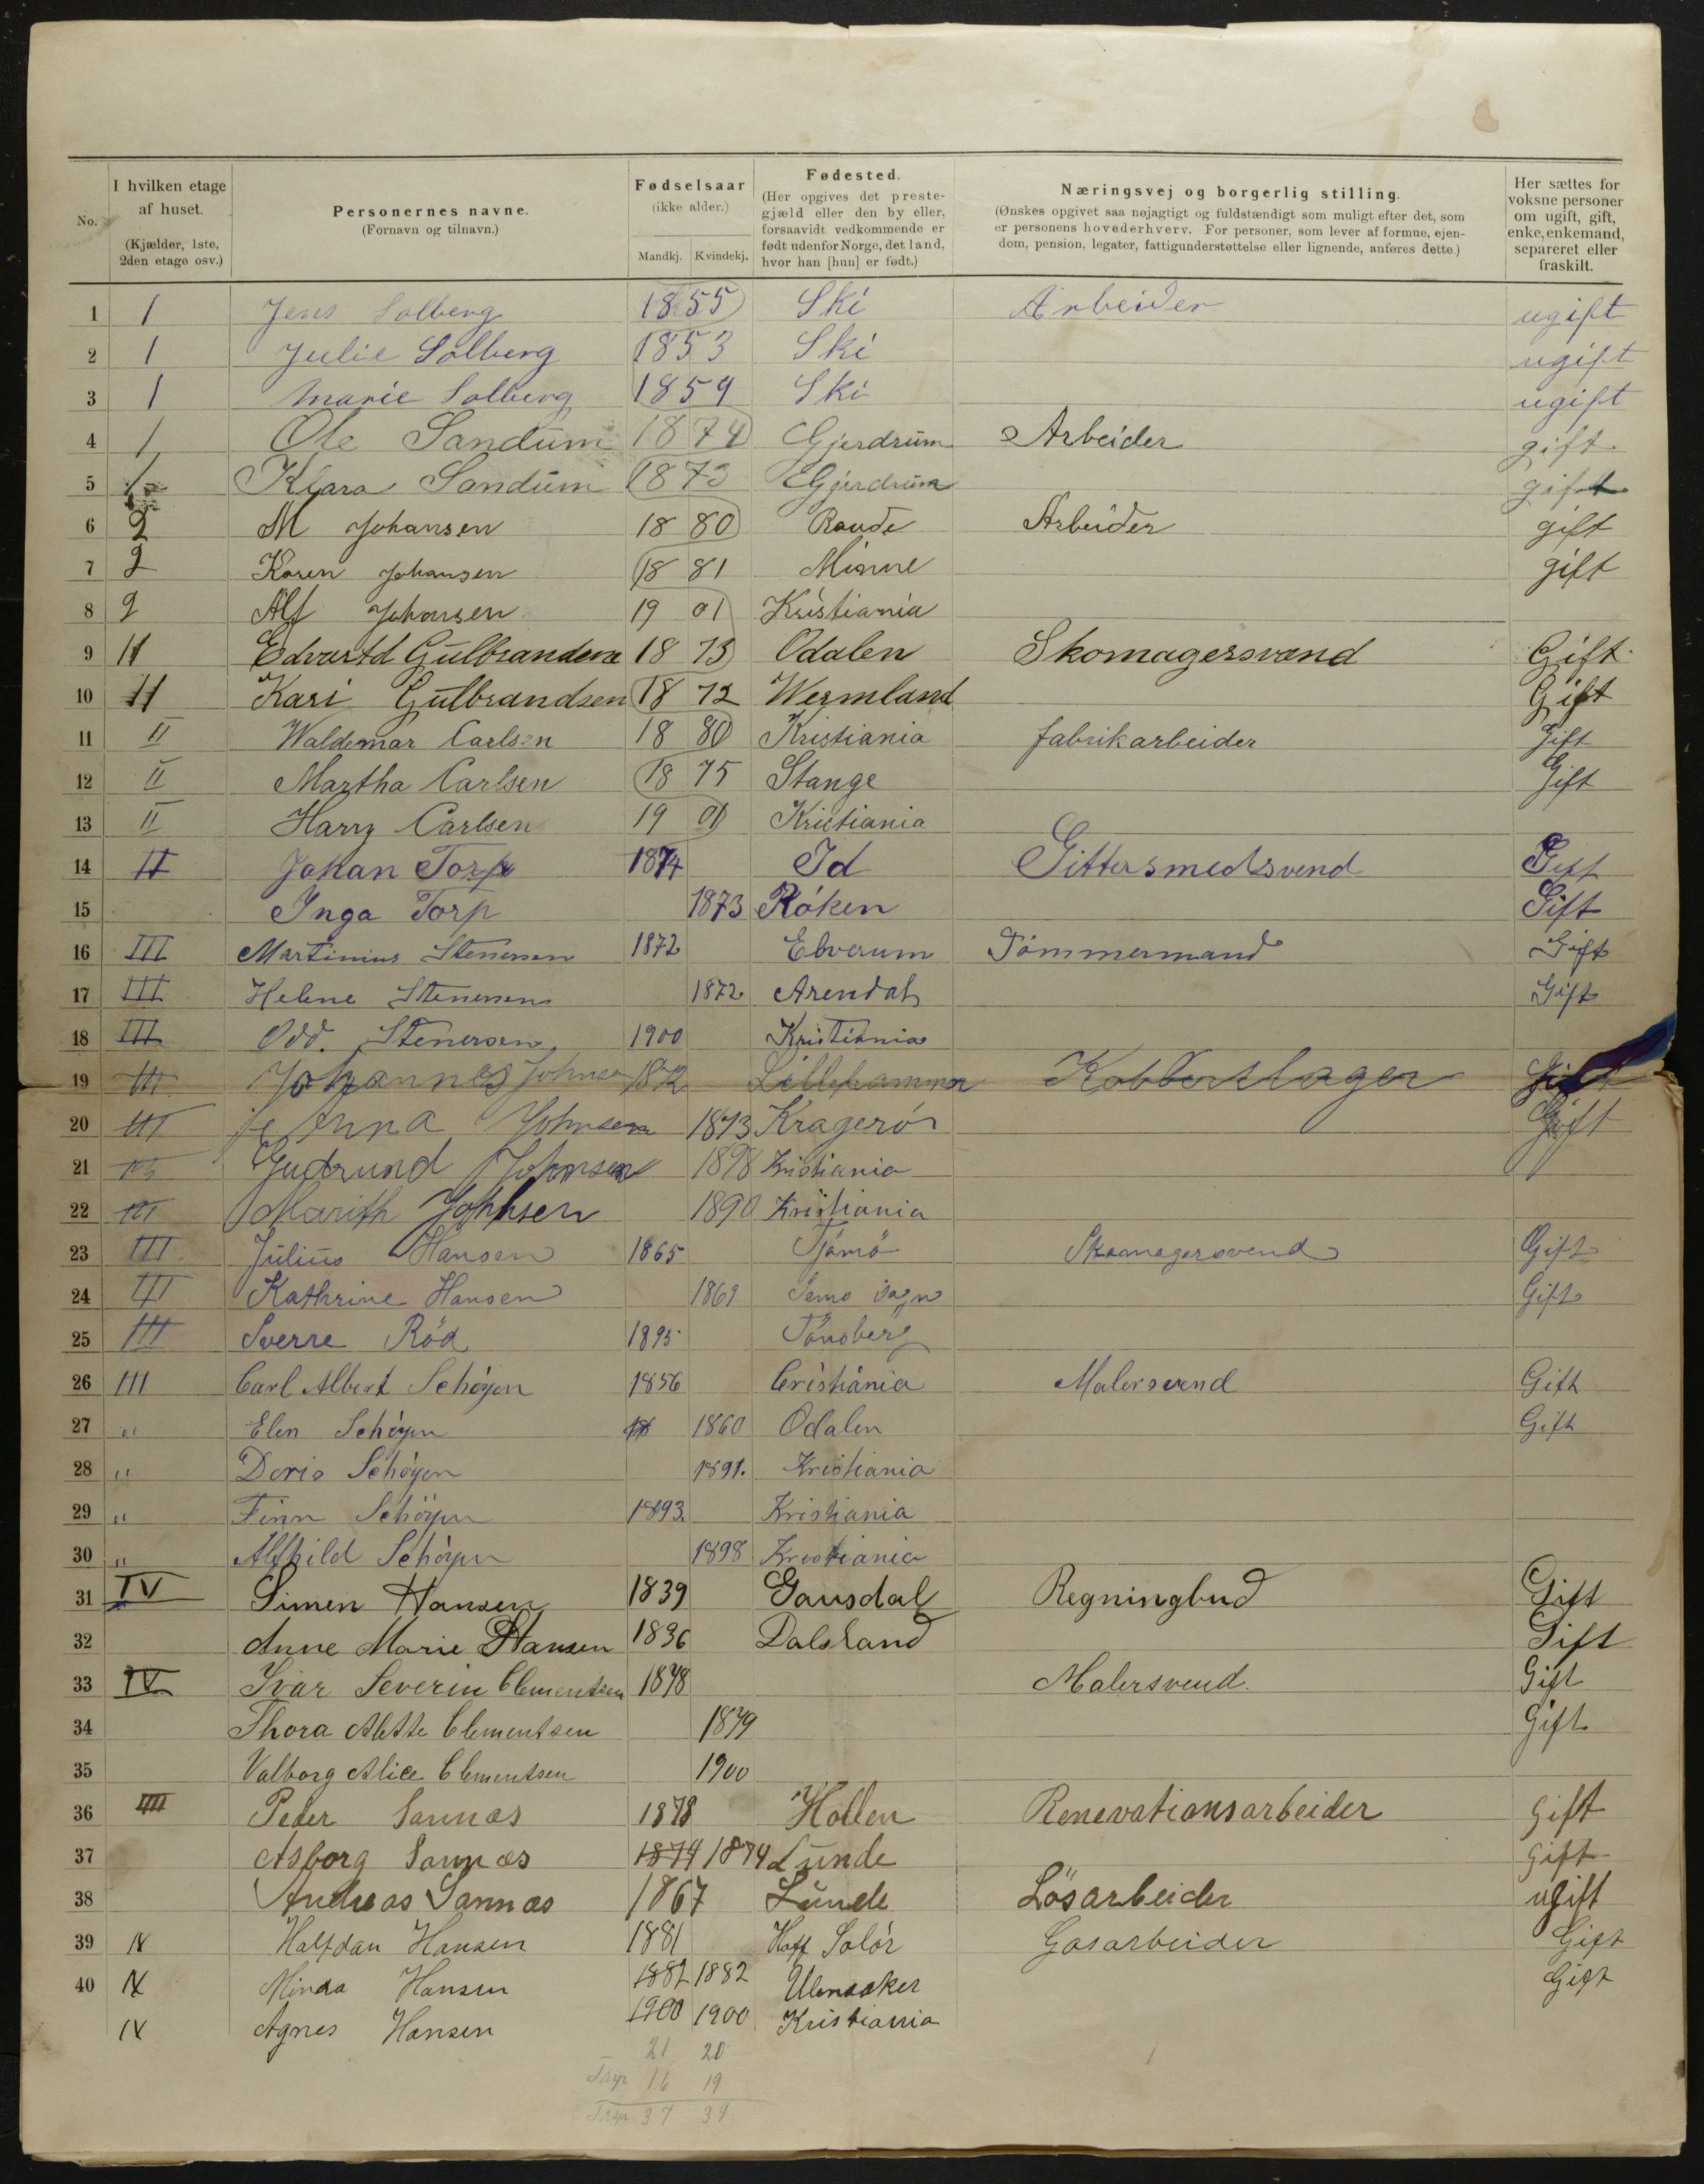 No.
I hvilken etage af huset. (Kjælder, 1ste, 2den etage osv.)
Personernes navne. (Fornavn og tilnavn.)
Fødselsaar (ikke alder.) Mandkj. Kvindekj.
Fødested. (Her opgives det prestegjæld eller den by eller, forsaavidt vedkommende er født udenfor Norge, det land, hvor han [hun] er født.)
Næringsvej og borgerlig stilling. (Ønskes opgivet saa nøjagtigt og fuldstændigt som muligt efter det, som er personens hovederhverv. For personer, som lever af formue, ejendom, pension, legater, fattigunderstøttelse eller lignende, anføres dette.)
Her sættes for voksne personer om ugift, gift, enke, enkemand, separeret eller fraskilt.
1 1 Jens Solberg 1855 Ski Arbeider ugift
2 1 Julie Solberg 1853 Ski ugift
3 1 Marie Solberg 1859 Ski ugift
4 1 Ole Sandum 1874 Gjerdrum Arbeider gift
5 1 Klara Sandum 1873 Gjerdrum gift
6 2 M Johansen 18 80 Raade Arbeider gift
7 2 Karen Johansen 18 81 Minne gift
8 2 Alf Johansen 19 01 Kristiania
9 II Edvartd Gulbrandsen 18 73 Odalen Skomagersvend Gift
10 II Kari Gulbrandsen 18 72 Wermland Gift
11 II Waldemar Carlsen 18 80 Kristiania fabrikarbeider Gift
12 II Martha Carlsen 18 75 Stange Gift
13 II Harry Carlsen 19 01 Kristiania
14 II Johan Torp 1874 Id Gittersmedsvend Gift
15 Inga Torp 1873 Røken Gift
16 III Martinius Stenersen 1872 Elverum Tømmermand Gift
17 III Helene Stenersen 1872 Arendal Gift
18 III Odd. Stenersen 1900 Kristiania
19 III Johannes Johnsen 1872 Lillehammer Kobberslager Gift
20 III Anna Johnsen 1873 Kragerö Gift
21 III Gudrund Johnsen 1898 Kristiania
22 III Marith Johnsen 1890 Kristiania
23 III Julius Hansen 1865 Tjømø Skomagersvend Gift
24 III Kathrine Hansen 1869 Semo sogn Gift
25 III Sverre Röd 1895 Tönsberg
26 III Carl Albert Schöyen 1856 Cristiania Malersvend Gift
27 " Elen Schöyen 1860 Odalen Gift
28 " Doris Schöyen 1891. Kristiania
29 " Finn Schöyen 1893. Kristiania
30 " Alfhild Schöyen 1898 Kristiania
31 IV Simen Hansen 1839 Gausdal Regningbud Gift
32 Anne Marie Hansen 1836 Dalsland Gift
33 IV Ivar Severin Clementsen 1878 Malersvend. Gift
34 Thora Alette Clementsen 1879 Gift
35 Valborg Alice Clementsen 1900
36 IIII Peder Sannæs 1878 Hollen Renovationsarbeider Gift
37 Asborg Sannæs 1874 1874 Lunde gift
38 Andreas Sannæs 1867 Lunde Lösarbeider ugift
39 IV Halfdan Hansen 1881 Hoff Solör Gasarbeider Gift
40 IV Minda Hansen 1882 1882 Ulensaker Gift
IV Agnes Hansen 1900 1900 Kristiania
21 20
16 19
37 39